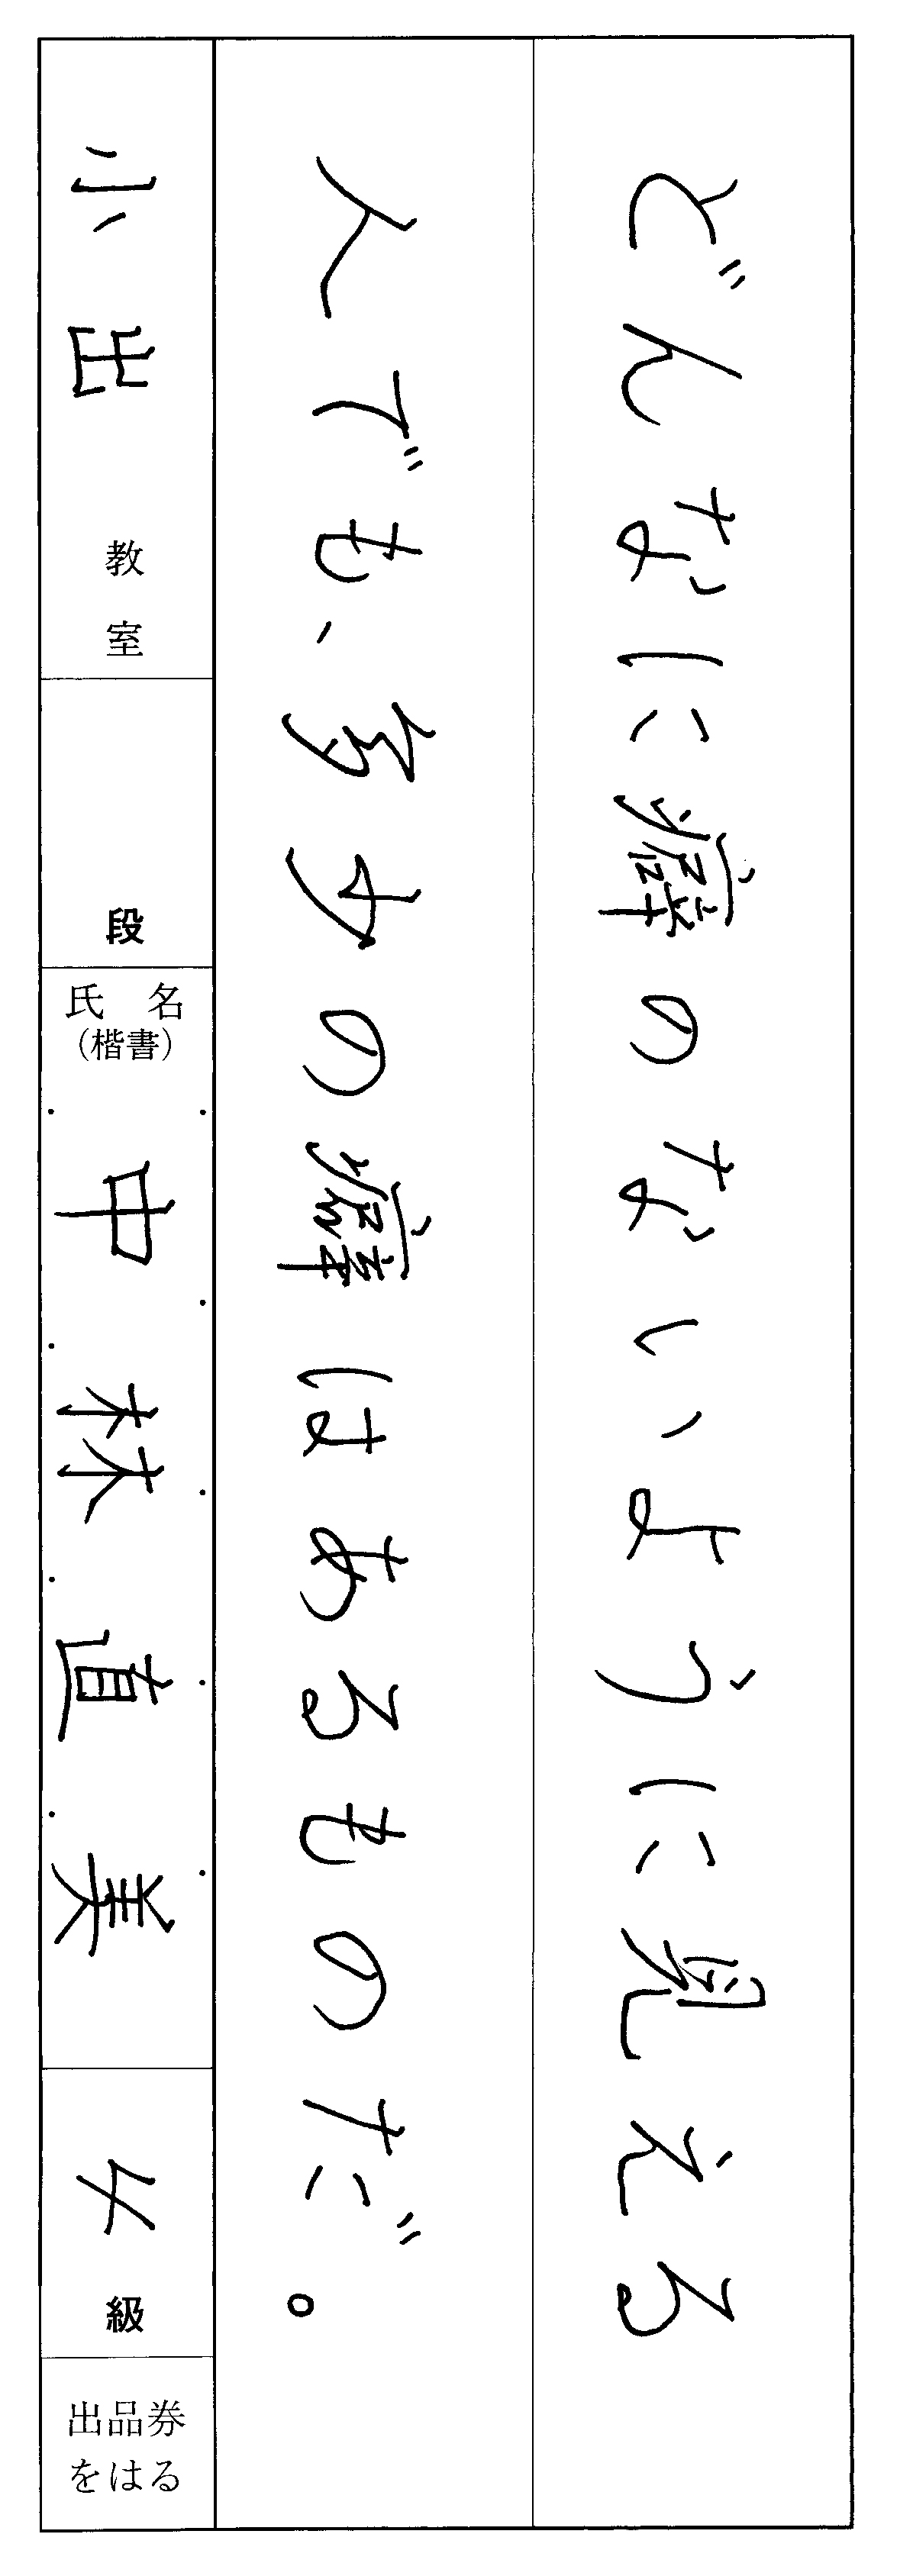 どんなに癖のないように見える
人でも、多少の癖はあるものだ。
小出 教室
段
氏名
(楷書)
中林直美
4 級
出品券
をはる